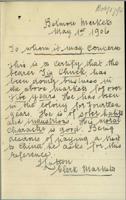 Balmain Markets
May 1st 1906
To whom it may concern
This is to certify that the
bearer Sig Chuck has
been doing business in
the above Markets for over
five years. He has been
in the colony for fourteen
years. He is of sober habits
and industrious. His moral
character is good. Being
desirous of paying a visit
to China he asks for this
reference
Clerk Markets